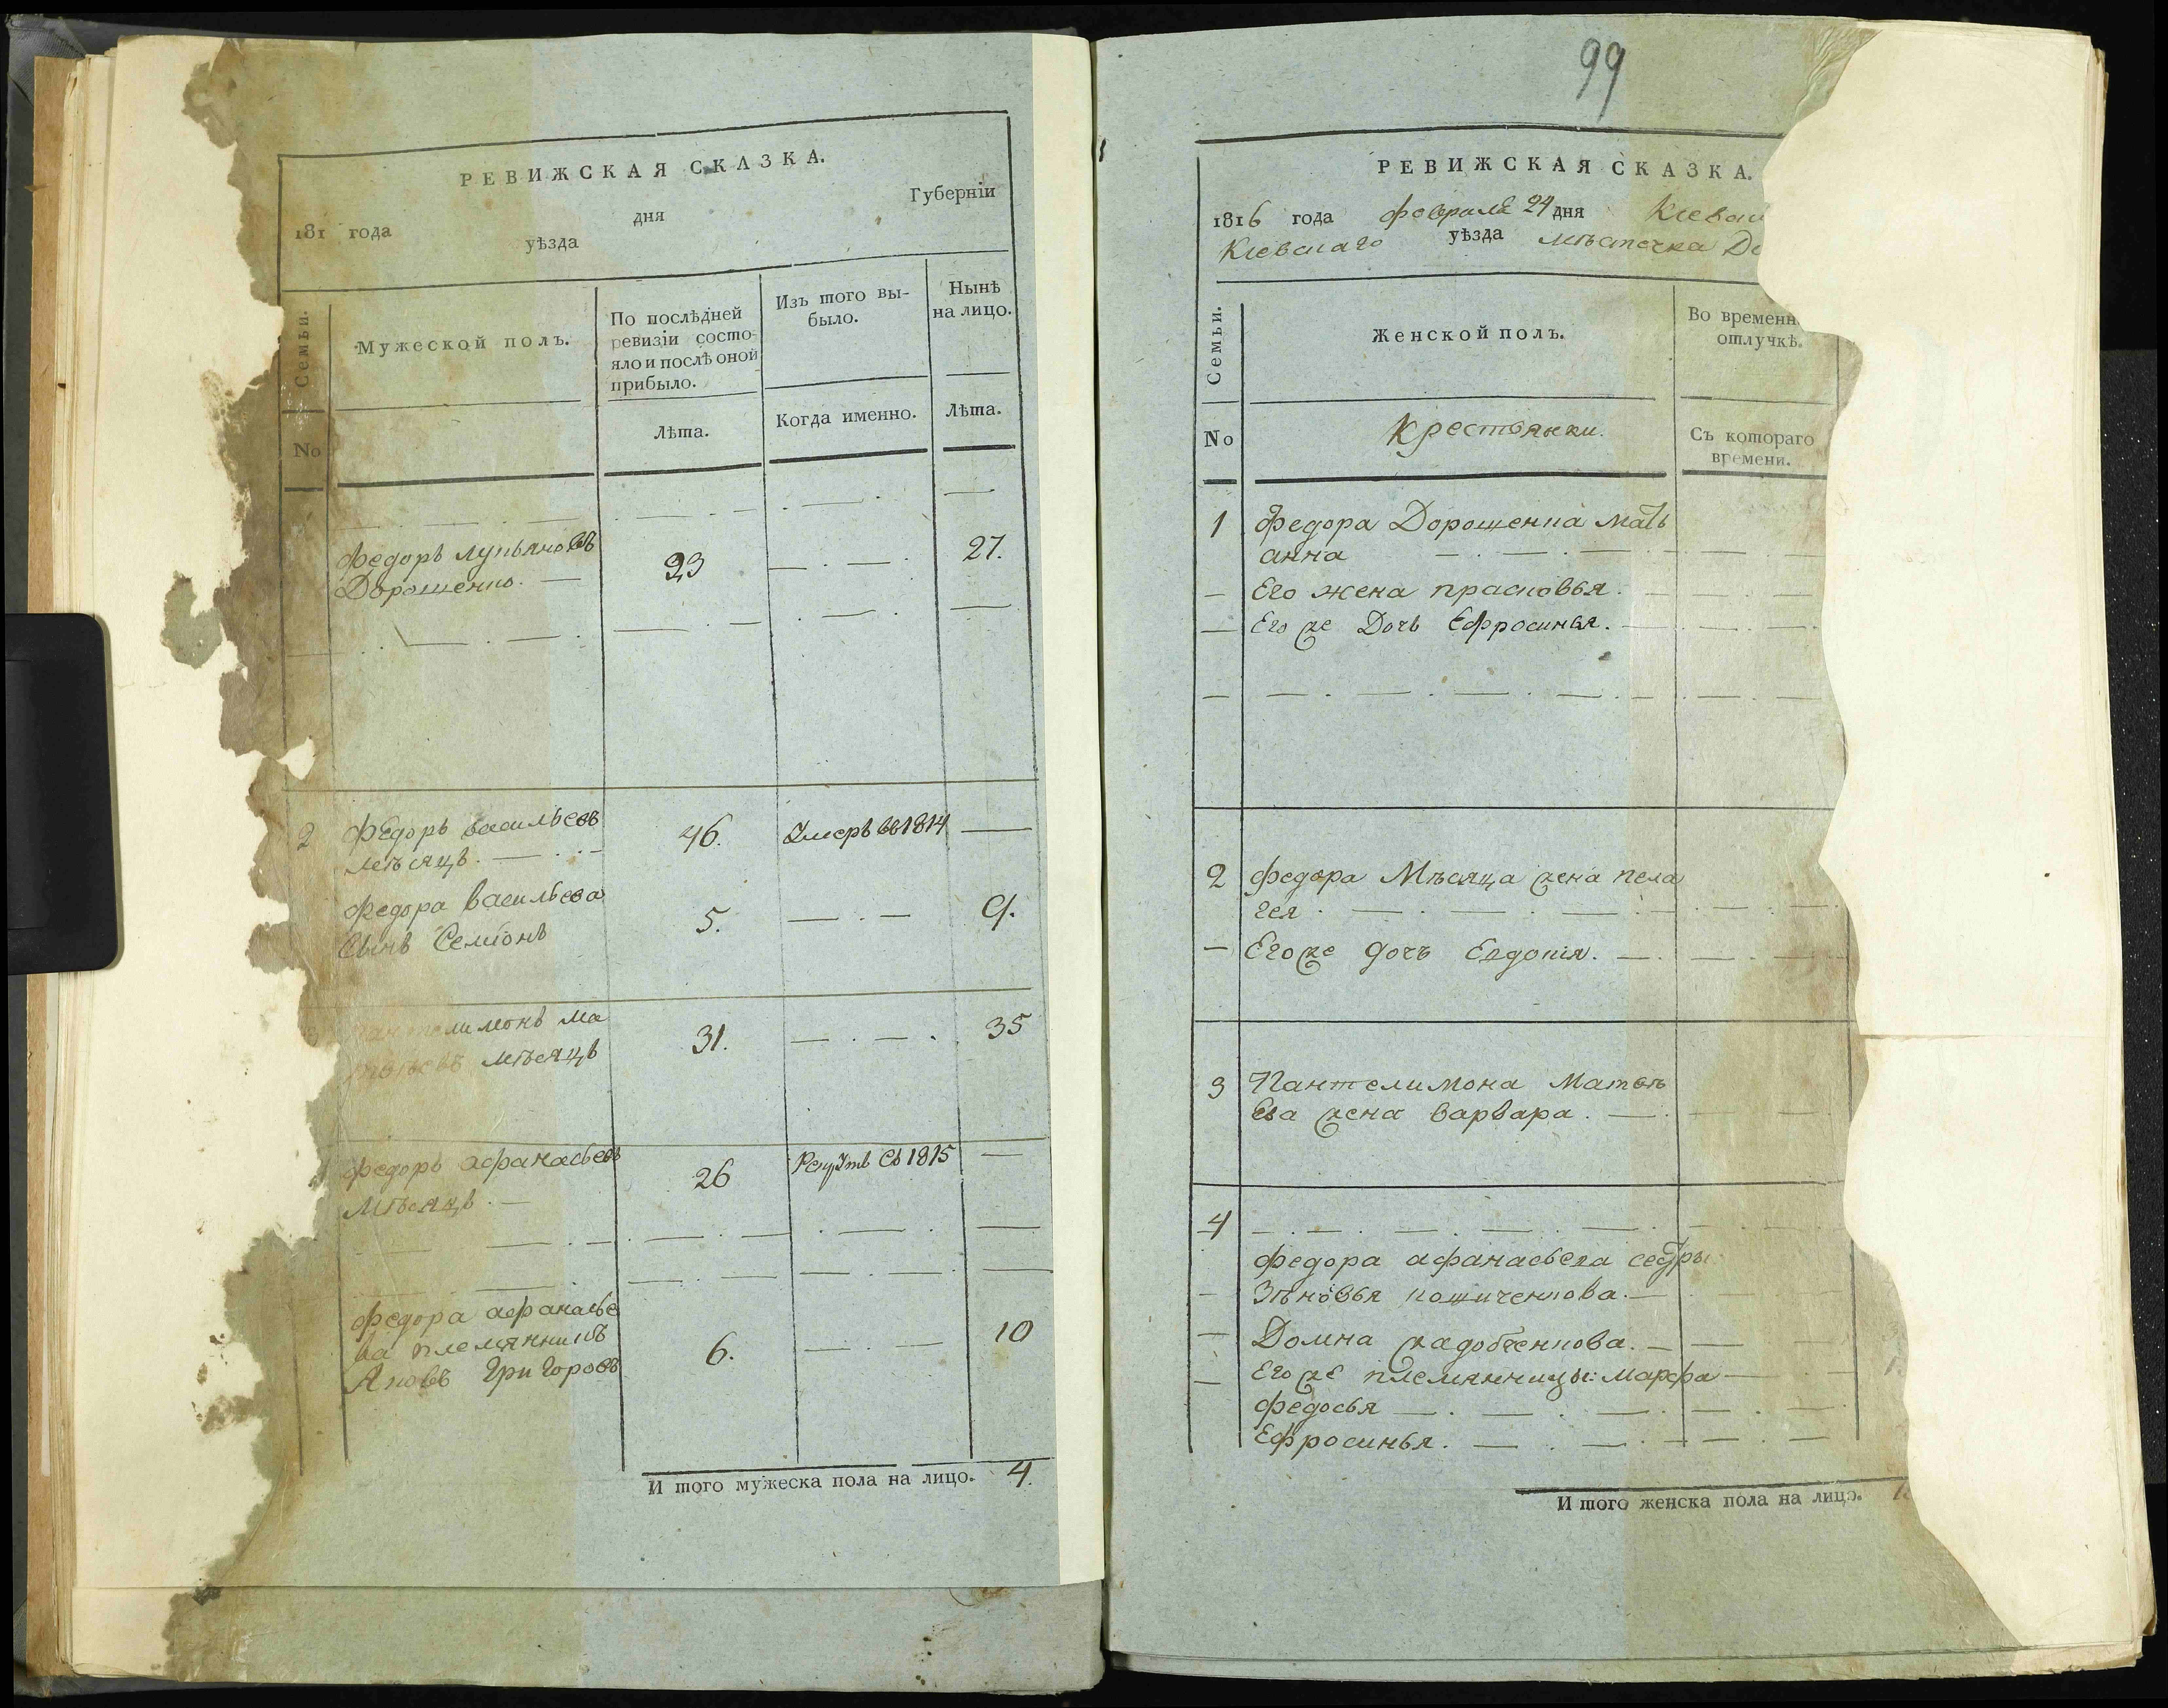 РЕВИЖСКАЯ СКАЗКА.
181 года дня Губерніи
уѣзда
Семьи.
Мужеской полъ.
По послѣдней
ревизіи состо-
яло и послѣ оной
прибыло.
Изъ того вы-
было.
Нынѣ
на лицо.
No
Лѣта.
Когда именно.
Лѣта.
Федоръ Лукьяновъ 23 27.
Дорошенко.
2 Федоръ васильевъ 46. Умеръ въ 1814
мѣсяцъ.
Федора васильева 5. 9.
Сынъ Семіонъ
Пантелимонъ Ма 31. 35
твѣевъ мѣсяцъ
Федоръ афанасьевъ 26 Рекрутъ съ 1815
Мѣсяцъ.
Федора афанасье
ва племянникъ 6. 10
Яковъ Григоровъ
И того мужеска пола на лицо. 4.
99
РЕВИЖСКАЯ СКАЗКА.
1816 года февраля 24 дня
Кіевскаго уѣзда мѣстечка
Семьи.
Женской полъ.
Во временн
отлучкѣ.
No
Крестьянки.
Съ котораго
времени.
1 Федора Дорошенка мать
анна
Его жена прасковья.
Его же Дочь Ефросинья.
2 Федора Мѣсяца жена пела
гея.
Его же дочь Евдокія.
3 Пантелимона Матвѣ
ева жена варвара.
4
Федора афанасьева сестры
Зѣновья
Домна
Его же племянницы: марфа
Федосья
Ефросинья.
И того женска пола на лицо.